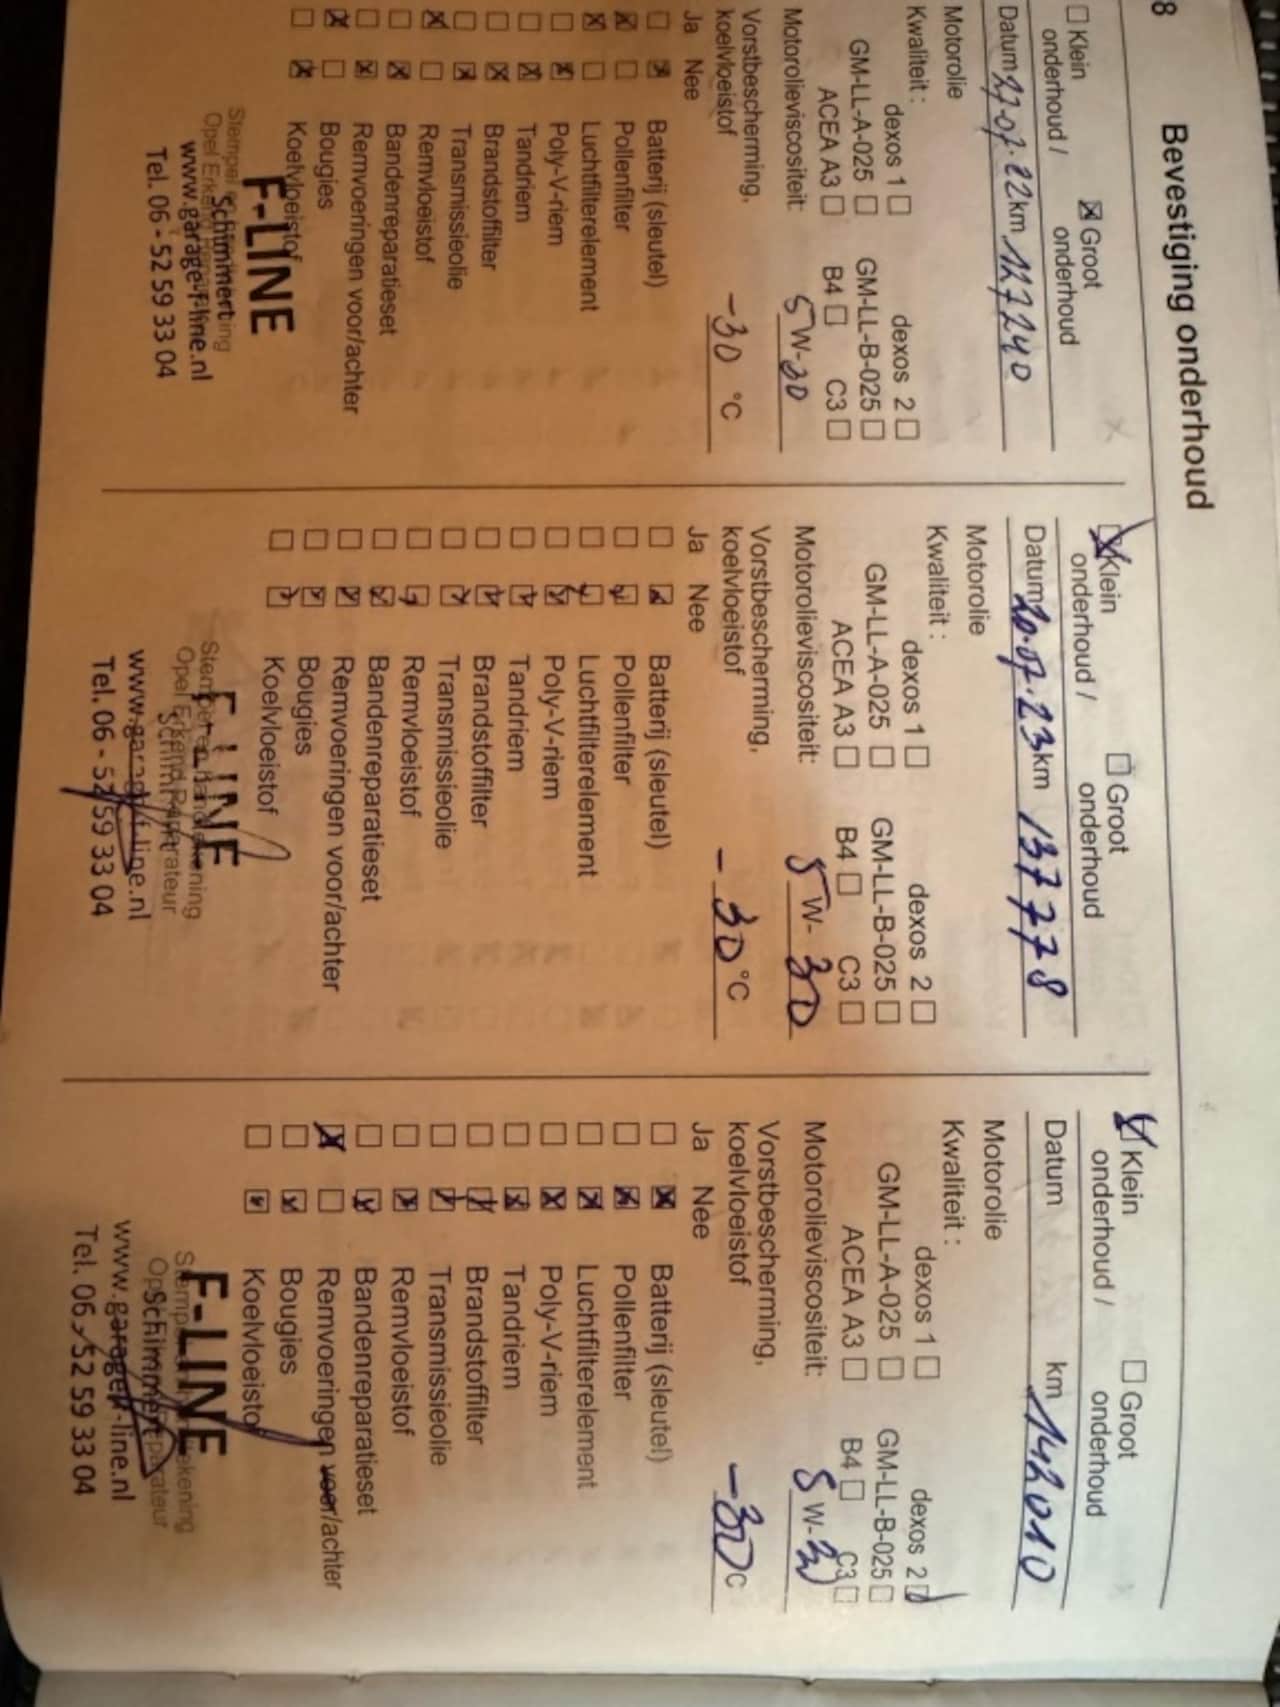 8
Bevestiging onderhoud
☐ Klein onderhoud /
☒ Groot onderhoud
Datum 27-07-22 km 127240
Motorolie
Kwaliteit :
dexos 1 ☐ dexos 2 ☐
GM-LL-A-025 ☐ GM-LL-B-025 ☐
ACEA A3 ☐ B4 ☐ C3 ☐
Motorolieviscositeit: 5 W-30
Vorstbescherming,
koelvloeistof -30 °C
Ja Nee
☐ ☒ Batterij (sleutel)
☒ ☐ Pollenfilter
☒ ☐ Luchtfilterelement
☐ ☒ Poly-V-riem
☐ ☒ Tandriem
☐ ☒ Brandstoffilter
☐ ☒ Transmissieolie
☒ ☐ Remvloeistof
☐ ☒ Bandenreparatieset
☐ ☒ Remvoeringen voor/achter
☒ ☐ Bougies
☐ ☒ Koelvloeistof
F-LINE
Schimmert
www.garage-f-line.nl
Tel. 06 - 52 59 33 04
☒ Klein onderhoud /
☐ Groot onderhoud
Datum 20-07-23 km 137778
Motorolie
Kwaliteit :
dexos 1 ☐ dexos 2 ☐
GM-LL-A-025 ☐ GM-LL-B-025 ☐
ACEA A3 ☐ B4 ☐ C3 ☐
Motorolieviscositeit: 5 W-30
Vorstbescherming,
koelvloeistof -30 °C
Ja Nee
☐ ☒ Batterij (sleutel)
☐ ☒ Pollenfilter
☐ ☒ Luchtfilterelement
☐ ☒ Poly-V-riem
☐ ☒ Tandriem
☐ ☒ Brandstoffilter
☐ ☒ Transmissieolie
☐ ☒ Remvloeistof
☐ ☒ Bandenreparatieset
☐ ☒ Remvoeringen voor/achter
☐ ☒ Bougies
☐ ☒ Koelvloeistof
F-LINE
Stempel en handtekening
Opel Erkend Reparateur
Schimmert
www.garage-f-line.nl
Tel. 06 - 52 59 33 04
☒ Klein onderhoud /
☐ Groot onderhoud
Datum km 142010
Motorolie
Kwaliteit :
dexos 1 ☐ dexos 2 ☒
GM-LL-A-025 ☐ GM-LL-B-025 ☐
ACEA A3 ☐ B4 ☐ C3 ☐
Motorolieviscositeit: 5 W-30
Vorstbescherming,
koelvloeistof -30 °C
Ja Nee
☐ ☒ Batterij (sleutel)
☐ ☒ Pollenfilter
☐ ☒ Luchtfilterelement
☐ ☒ Poly-V-riem
☐ ☒ Tandriem
☐ ☒ Brandstoffilter
☐ ☒ Transmissieolie
☐ ☒ Remvloeistof
☐ ☒ Bandenreparatieset
☒ ☐ Remvoeringen voor/achter
☐ ☒ Bougies
☐ ☒ Koelvloeistof
F-LINE
Schimmert
www.garage-f-line.nl
Tel. 06 - 52 59 33 04